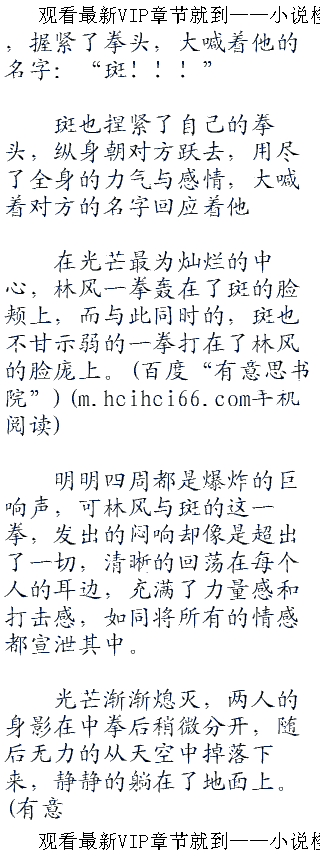 观看最新VIP章节就到——小说检
，握紧了拳头，大喊着他的
名字：“斑！！！”
斑也捏紧了自己的拳
头，纵身朝对方跃去，用尽
了全身的力气与感情，大喊
着对方的名字回应着他
在光芒最为灿烂的中
心，林风一拳轰在了斑的脸
颊上，而与此同时的，斑也
不甘示弱的一拳打在了林风
的脸庞上。(百度“有意思书
院”)(m.hcihci66.com手机
阅读)
明明四周都是爆炸的巨
响声，可林风与斑的这一
拳，发出的闷响却像是超出
了一切，清晰的回荡在每个
人的耳边，充满了力量感和
打击感，如同将所有的情感
都宣泄其中。
光芒渐渐熄灭，两人的
身影在中拳后稍微分开，随
后无力的从天空中掉落下
来，静静的躺在了地面上。
(有意
观看最新VIP章节就到——小说检